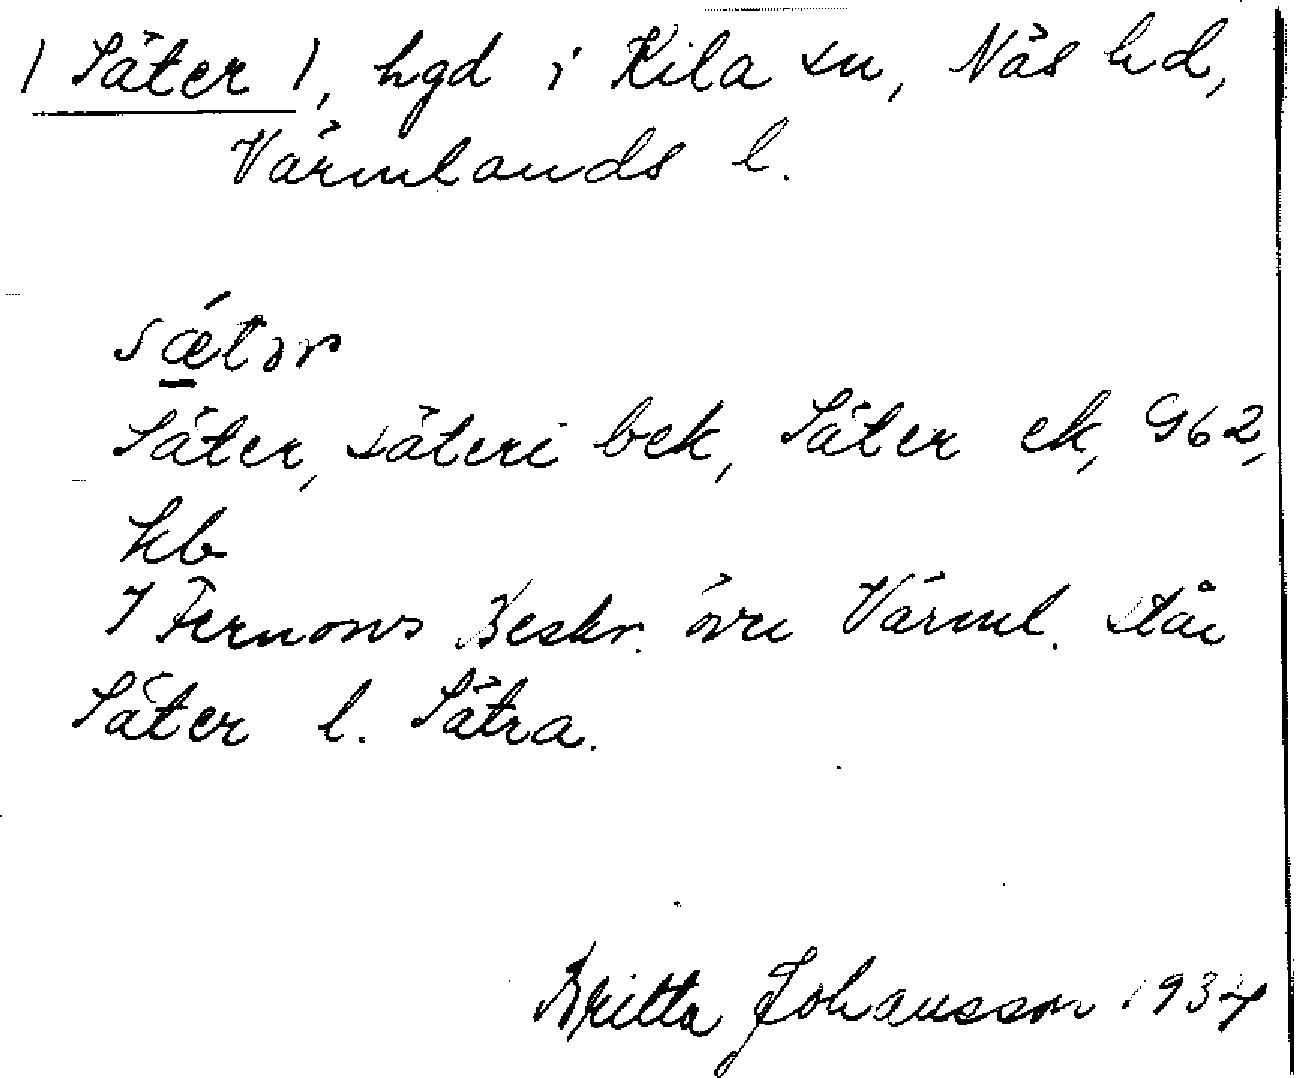 / Säter /, hgd i Kila sn, Näs hd,
Värmlands l.
sǽtər
Säter, säteri bek, Säter ek, G62,
kb
I Fernows Beskr. övr Värml. står
Säter l. Sätra.
Britta Johansson 1934